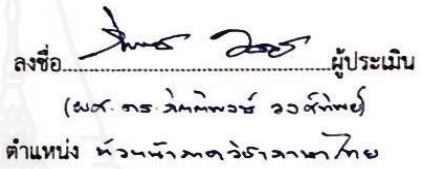 ลงชื่อ ผู้ประเมิน
(ผศ. ดร. กิตติพงษ์ วงศ์ทิพย์)
ตำแหน่ง หัวหน้าภาควิชาภาษาไทย